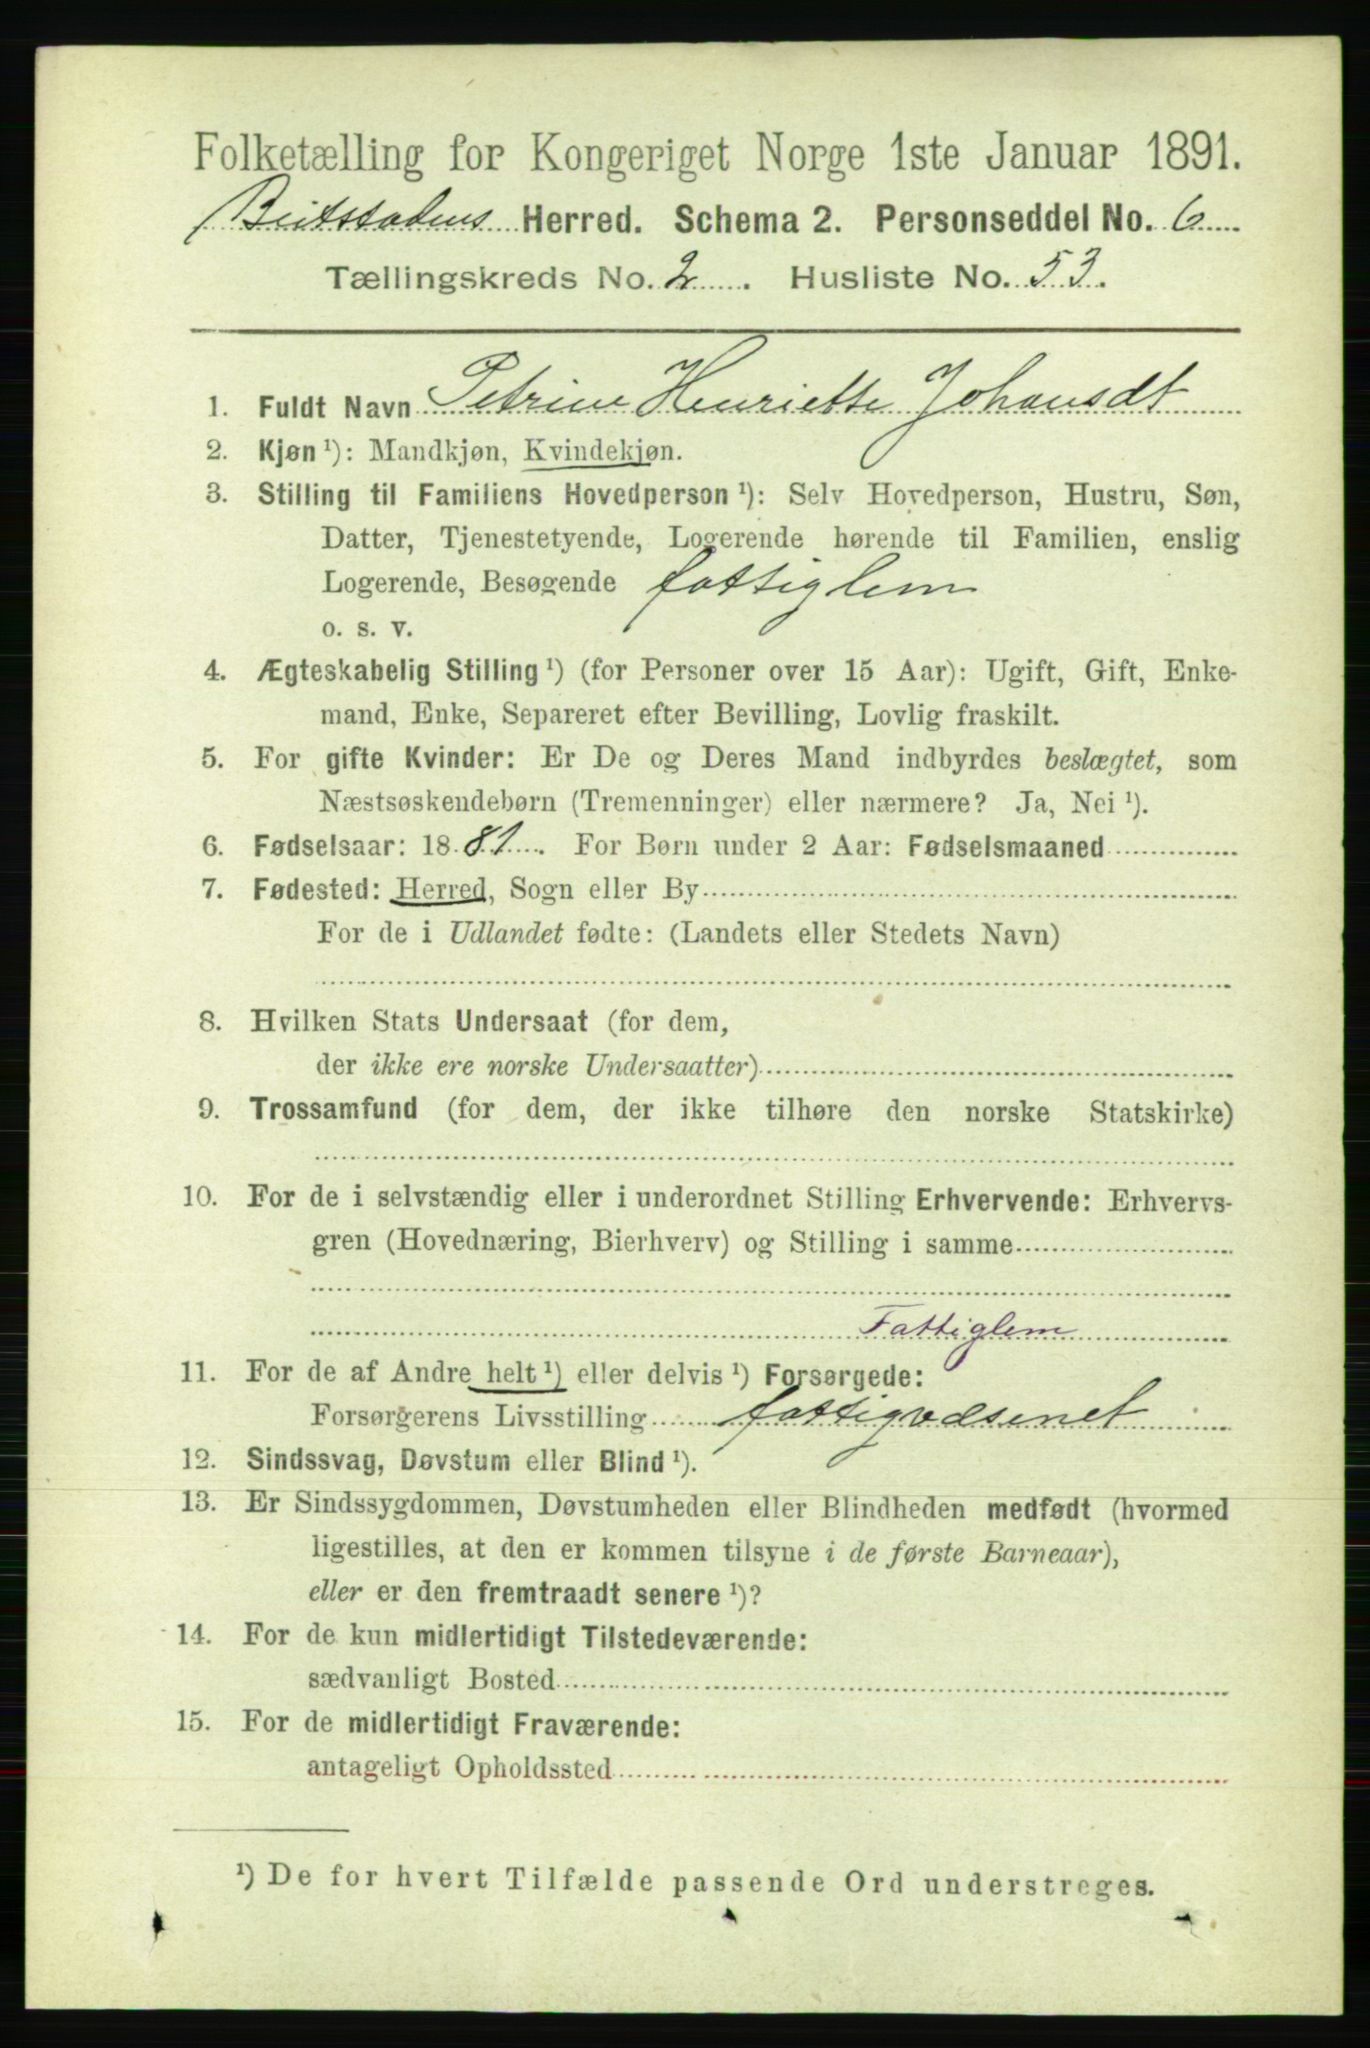 Folketælling for Kongeriget Norge 1ste Januar 1891.
Beitstadens Herred. Schema 2. Personseddel No. 6
Tællingskreds No. 2. Husliste No. 53.
1. Fuldt Navn Petrine Henriette Johansdt
2. Kjøn ¹): Mandkjøn, Kvindekjøn.
3. Stilling til Familiens Hovedperson ¹): Selv Hovedperson, Hustru, Søn,
Datter, Tjenestetyende, Logerende hørende til Familien, enslig
Logerende, Besøgende fattiglem
o. s. v.
4. Ægteskabelig Stilling ¹) (for Personer over 15 Aar): Ugift, Gift, Enke-
mand, Enke, Separeret efter Bevilling, Lovlig fraskilt.
5. For gifte Kvinder: Er De og Deres Mand indbyrdes beslægtet, som
Næstsøskendebørn (Tremenninger) eller nærmere? Ja, Nei ¹).
6. Fødselsaar: 1881. For Børn under 2 Aar: Fødselsmaaned
7. Fødested: Herred, Sogn eller By
For de i Udlandet fødte: (Landets eller Stedets Navn)
8. Hvilken Stats Undersaat (for dem,
der ikke ere norske Undersaatter)
9. Trossamfund (for dem, der ikke tilhøre den norske Statskirke)
10. For de i selvstændig eller i underordnet Stilling Erhvervende: Erhvervs-
gren (Hovednæring, Bierhverv) og Stilling i samme
Fattiglem
11. For de af Andre helt ¹) eller delvis ¹) Forsørgede:
Forsørgerens Livsstilling fattigvæsenet
12. Sindssvag, Døvstum eller Blind ¹).
13. Er Sindssygdommen, Døvstumheden eller Blindheden medfødt (hvormed
ligestilles, at den er kommen tilsyne i de første Barneaar),
eller er den fremtraadt senere ¹)?
14. For de kun midlertidigt Tilstedeværende:
sædvanligt Bosted
15. For de midlertidigt Fraværende:
antageligt Opholdssted
¹) De for hvert Tilfælde passende Ord understreges.